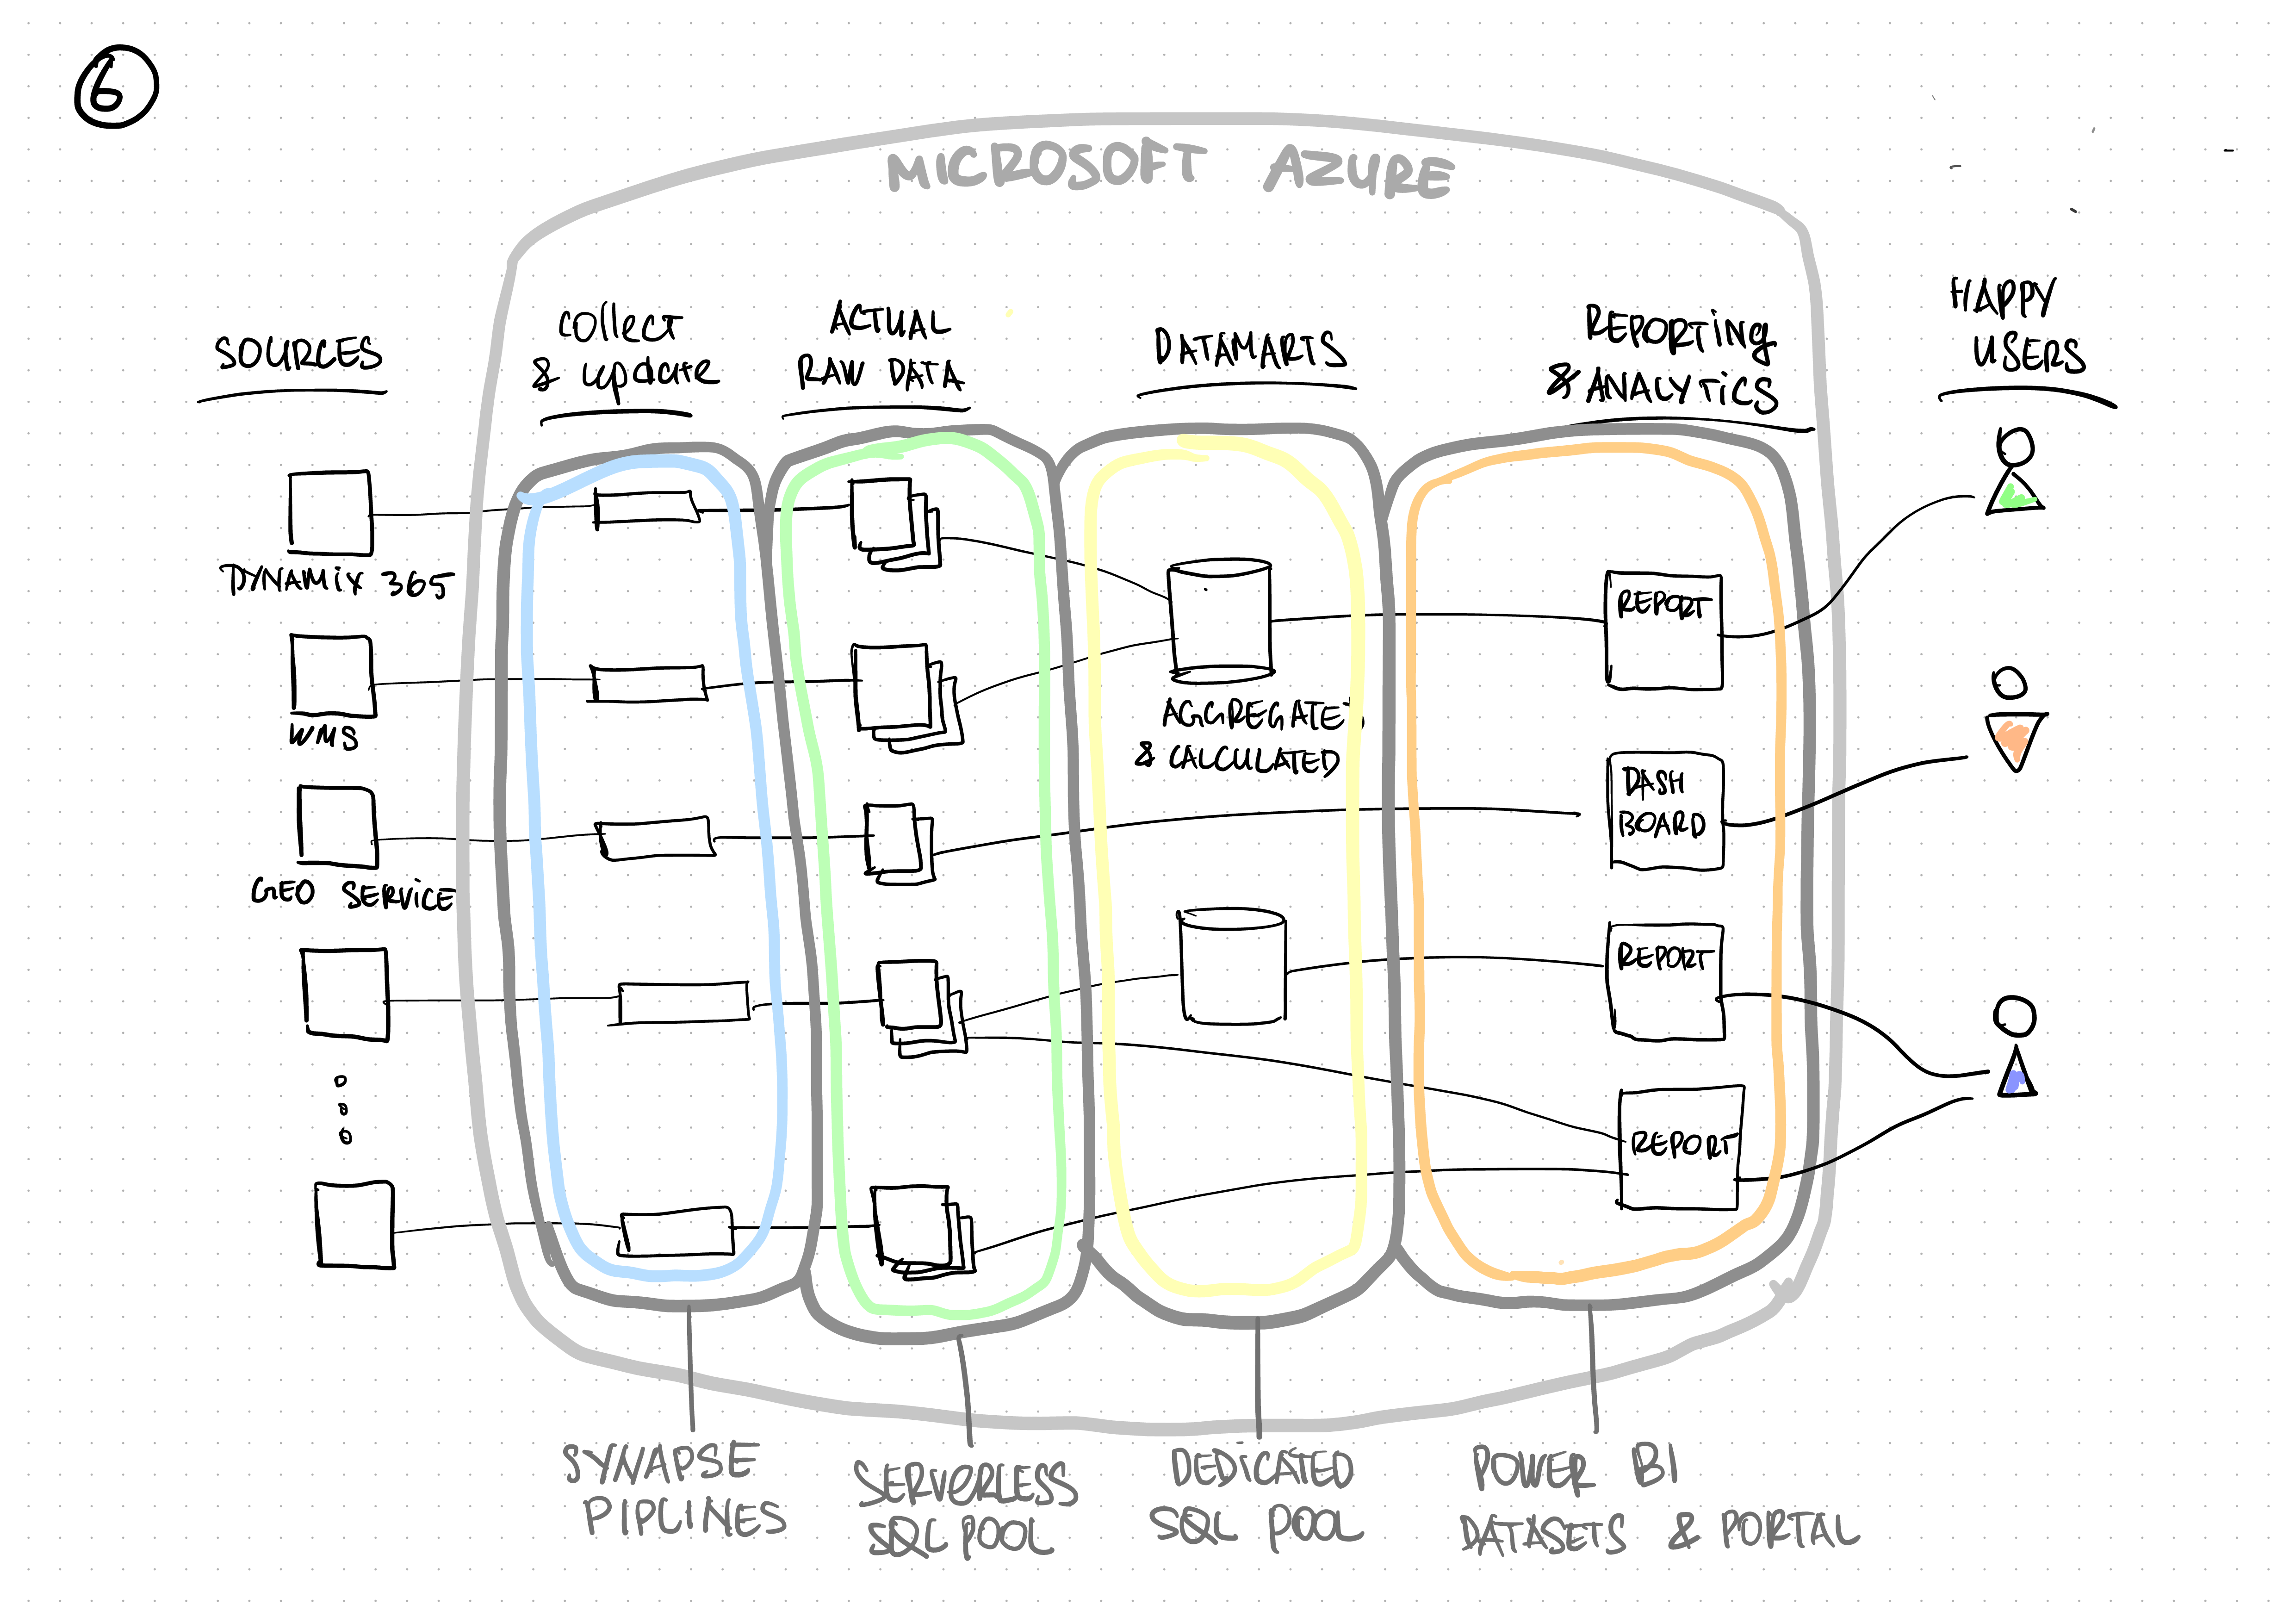 6
MICROSOFT AZURE
SOURCES
collect
& update
ACTUAL
RAW DATA
DATAMARTS
REPORTING
& ANALYTICS
HAPPY
USERS
DYNAMIX 365
WMS
GEO SERVICE
AGGREGATED
& CALCULATED
REPORT
DASH
BOARD
REPORT
REPORT
SYNAPSE
PIPLINES
SERVERLESS
SQL POOL
DEDICATED
SQL POOL
POWER BI
DATASETS & PORTAL